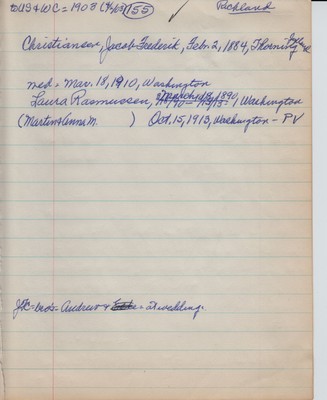 to US & WC = 1903 155 Richland
Christiansen, Jacob Frederik, Feb. 2, 1884, Thornby
md = Mar. 18, 1910, Washington
Laura Rasmussen, March 18, 1890, Washington
(Martin & Anna M. ) Oct. 15, 1913, Washington - PV
JFC = bros = Andrew & = at wedding.